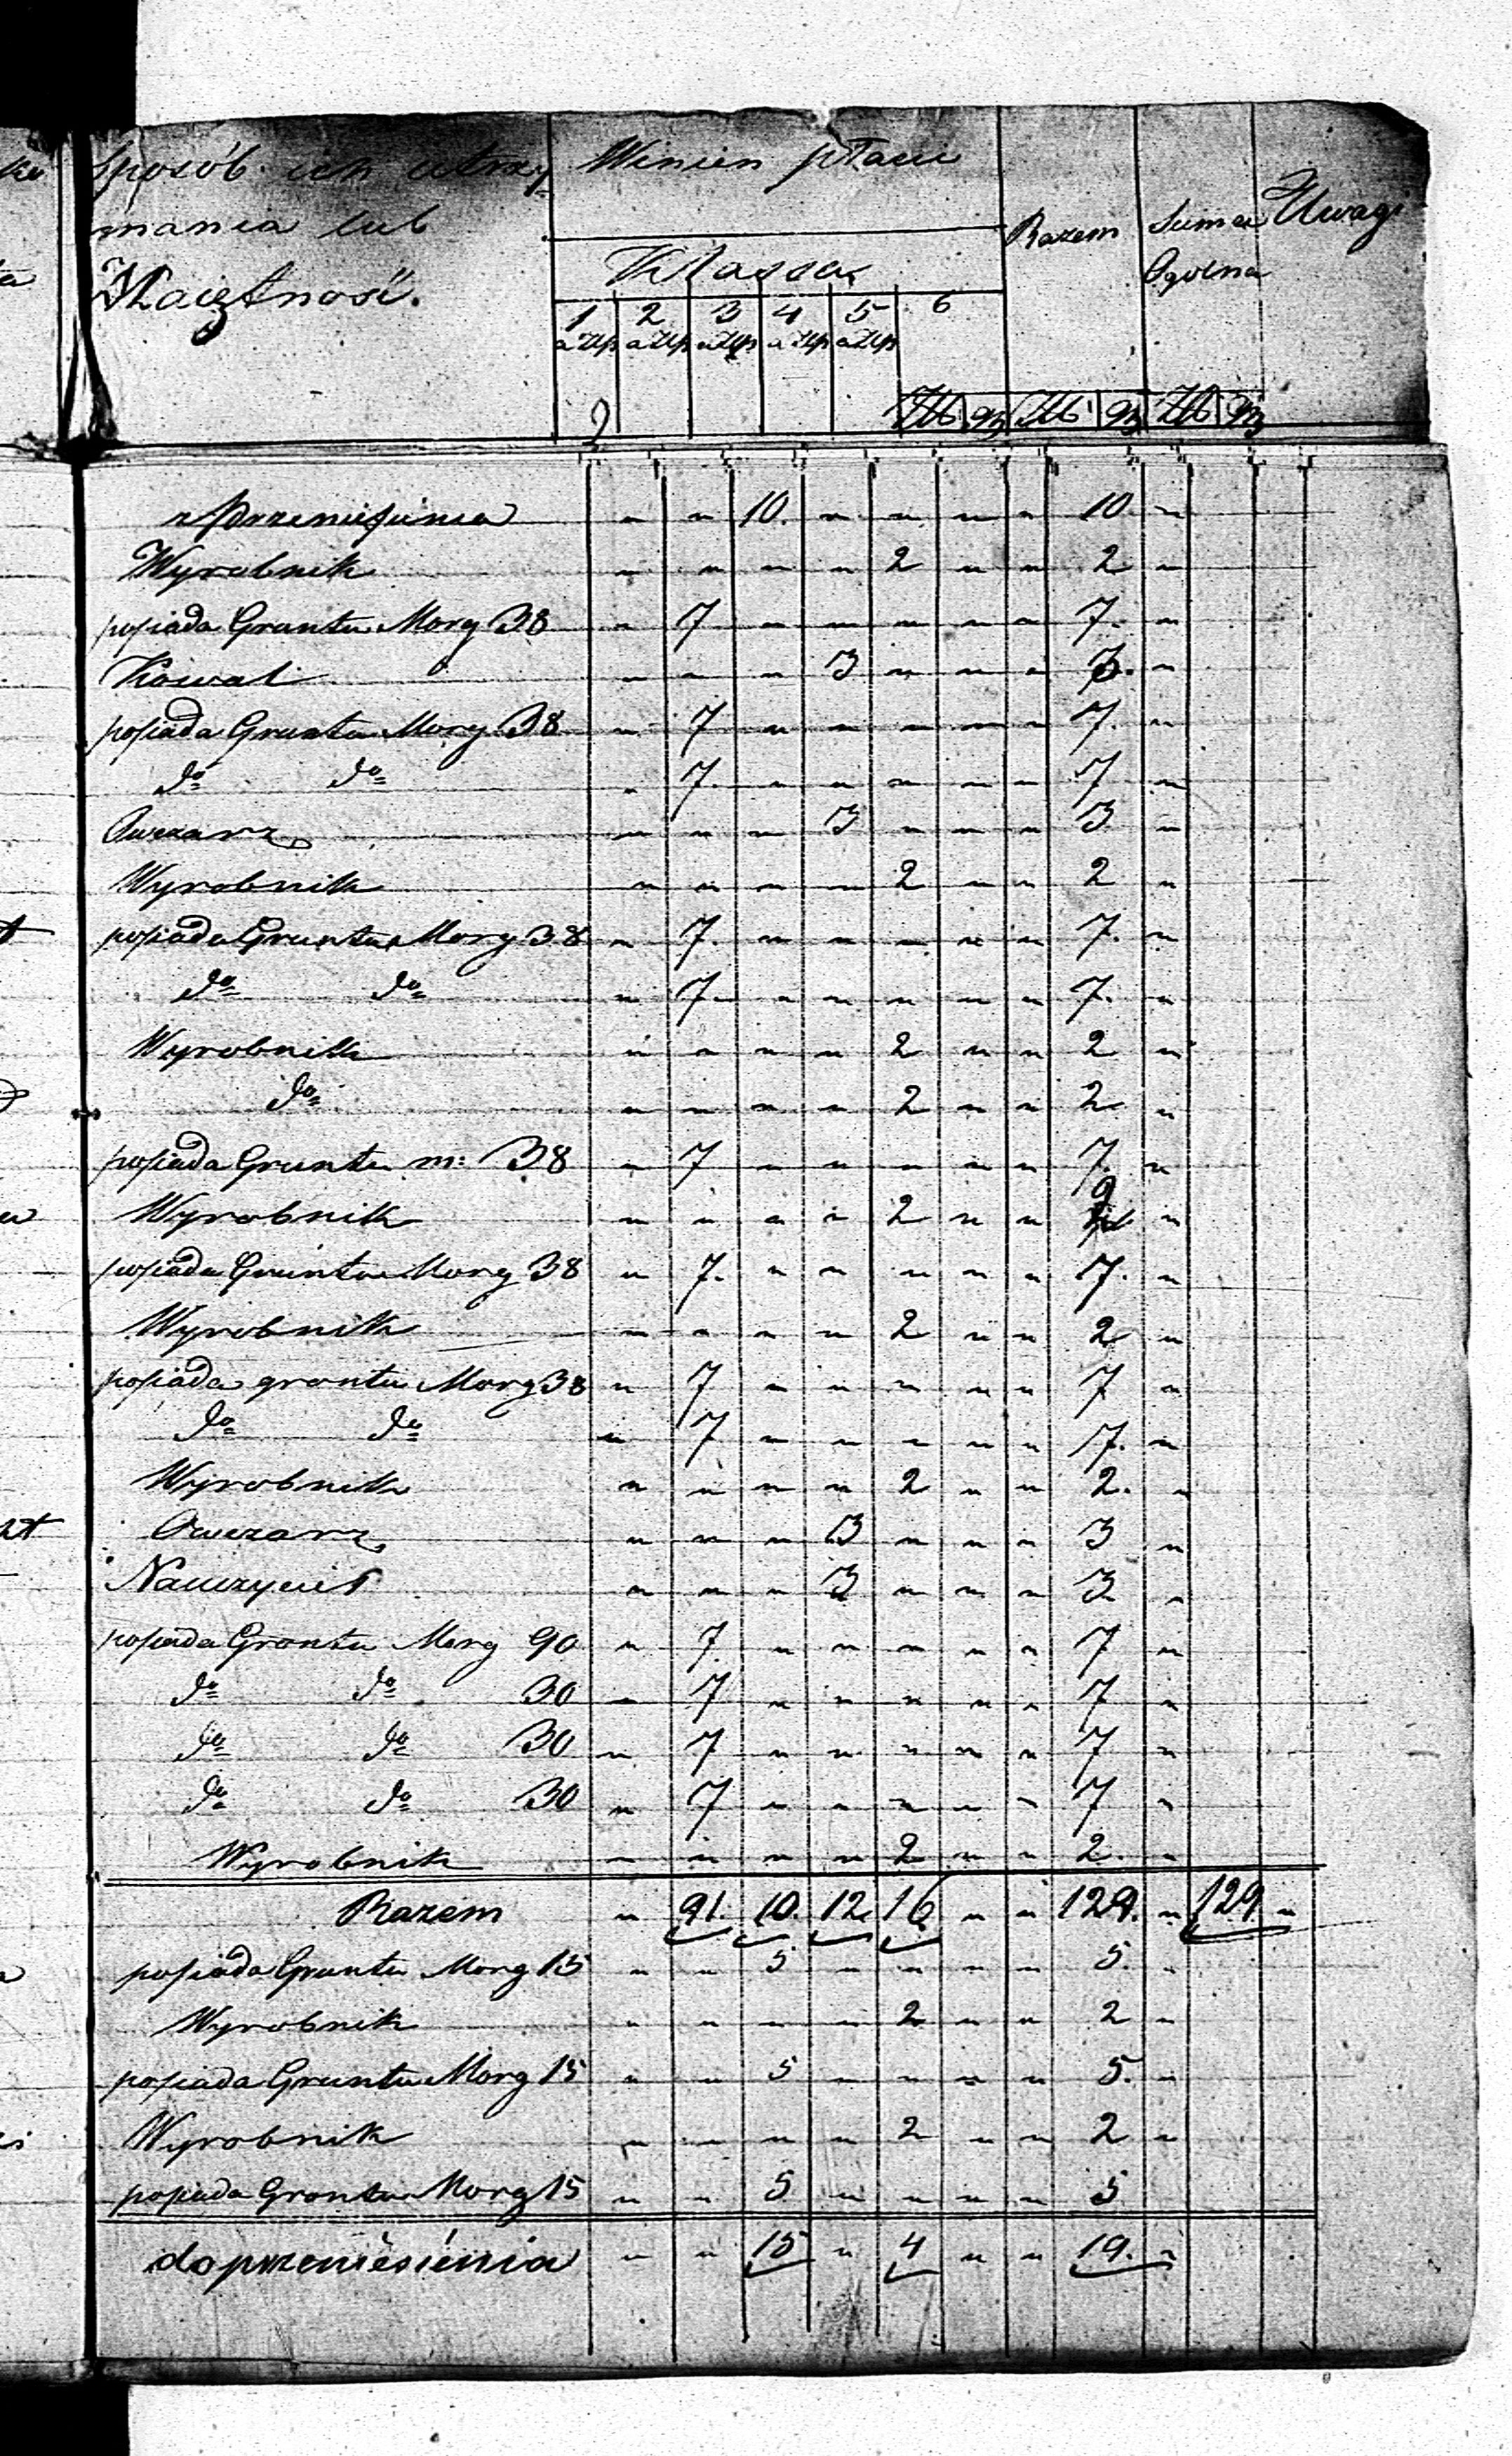 Sposób ich utrzy Winien płacić
mania lub Razem Suma Uwagi
Maiętność. Klassa Ogólna
1 2 3 4 5 6
a Złp a Złp a Złp a Złp a Złp
Złt gr Złt gr Złt gr
z Przeniesienia " " 10. " " " " 10 "
Wyrobnik " " " " 2 " " 2 "
posiada Gruntu Morg 38 " 7 " " " " " 7. "
Kowal " " " 3 " " " 3. "
posiada Gruntu Morg 38 " 7 " " " " " 7. "
do do " 7. " " " " " 7 "
Owczarz " " " 3 " " " 3. "
Wyrobnik " " " " 2 " " 2 "
posiada Gruntu Morg 38 " 7. " " " " " 7. "
do do " 7. " " " " " 7. "
Wyrobnik " " " " 2 " " 2 "
do " " " " 2 " " 2 "
posiada Gruntu m: 38 " 7 " " " " " 7. "
Wyrobnik " " " " 2 " " 2 "
posiada Gruntu Morg 38 " 7. " " " " " 7. "
Wyrobnik " " " " 2 " " 2 "
posiada gruntu Morg 38 " 7 " " " " " 7 "
do do " 7 " " " " " 7. "
Wyrobnik " " " " 2 " " 2. "
Owczarz " " " 3 " " " 3 "
Nauczyciel " " " 3 " " " 3 "
posiada Gruntu Morg 90 " 7 " " " " " 7 "
do do 30 " 7 " " " " " 7 "
do do 30 " 7 " " " " " 7 "
do do 30 " 7 " " " " " 7 "
Wyrobnik " " " " 2 " " 2. "
Razem " 91. 10. 12. 16 " " 129. " 129 "
posiada Gruntu Morg 15 " " 5 " " " " 5. "
Wyrobnik " " " " 2 " " 2 "
posiada Gruntu Morg 15 " " 5 " " " " 5. "
Wyrobnik " " " " 2 " " 2 "
posiada Gruntu Morg 15 " " 5 " " " " 5
do przeniesienia " " 15 " 4 " " 19. "